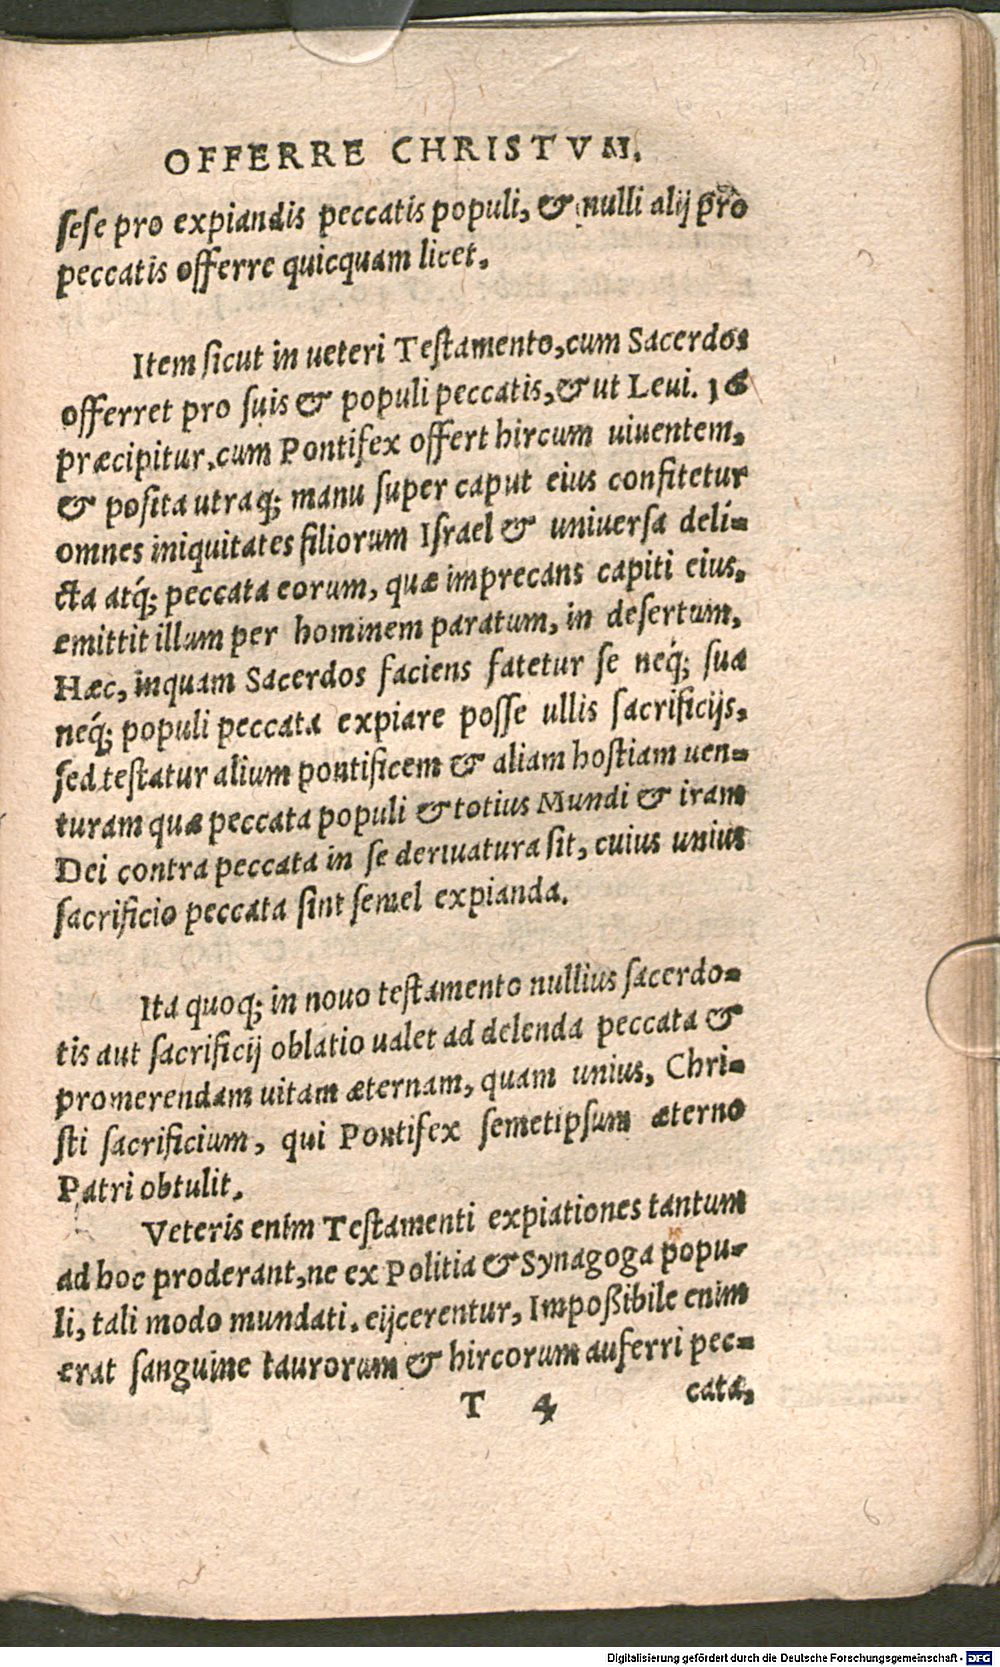 OFFERRE CHRISTVM.
sese pro expiandis peccatis populi, & nulli alij pro
peccatis offerre quicquam licet.
Item sicut in ueteri Testamento, cum Sacerdos
offerret pro suis & populi peccatis, & ut Leui. 16
præcipitur, cum Pontifex offert hircum uiuentem,
& posita utraq; manu super caput eius confitetur
omnes iniquitates filiorum Israel & uniuersa deli-
cta atq́; peccata eorum, quæ imprecans capiti eius,
emittit illum per hominem paratum, in desertum,
Hæc, inquam Sacerdos faciens fatetur se neq́; sua
neq́; populi peccata expiare posse ullis sacrificijs,
sed testatur alium pontificem & aliam hostiam uen-
turam quæ peccata populi & totius Mundi & iram
Dei contra peccata in se deriuatura sit, cuius unius
sacrificio peccata sint semel expianda.
Ita quoq; in nouo testamento nullius sacerdo-
tis aut sacrificij oblatio ualet ad delenda peccata &
promerendam uitam æternam, quam unius, Chri-
sti sacrificium, qui Pontifex semetipsum æterno
Patri obtulit.
Veteris enim Testamenti expiationes tantum
ad hoc proderant, ne ex Politia & Synagoga popu-
li, tali modo mundati, eijcerentur, Impoßibile enim
erat sanguine taurorum & hircorum auferri pec-
T 4 cata,
6
Digitalisierung gefördert durch die Deutsche Forschungsgemeinschaft - DFG